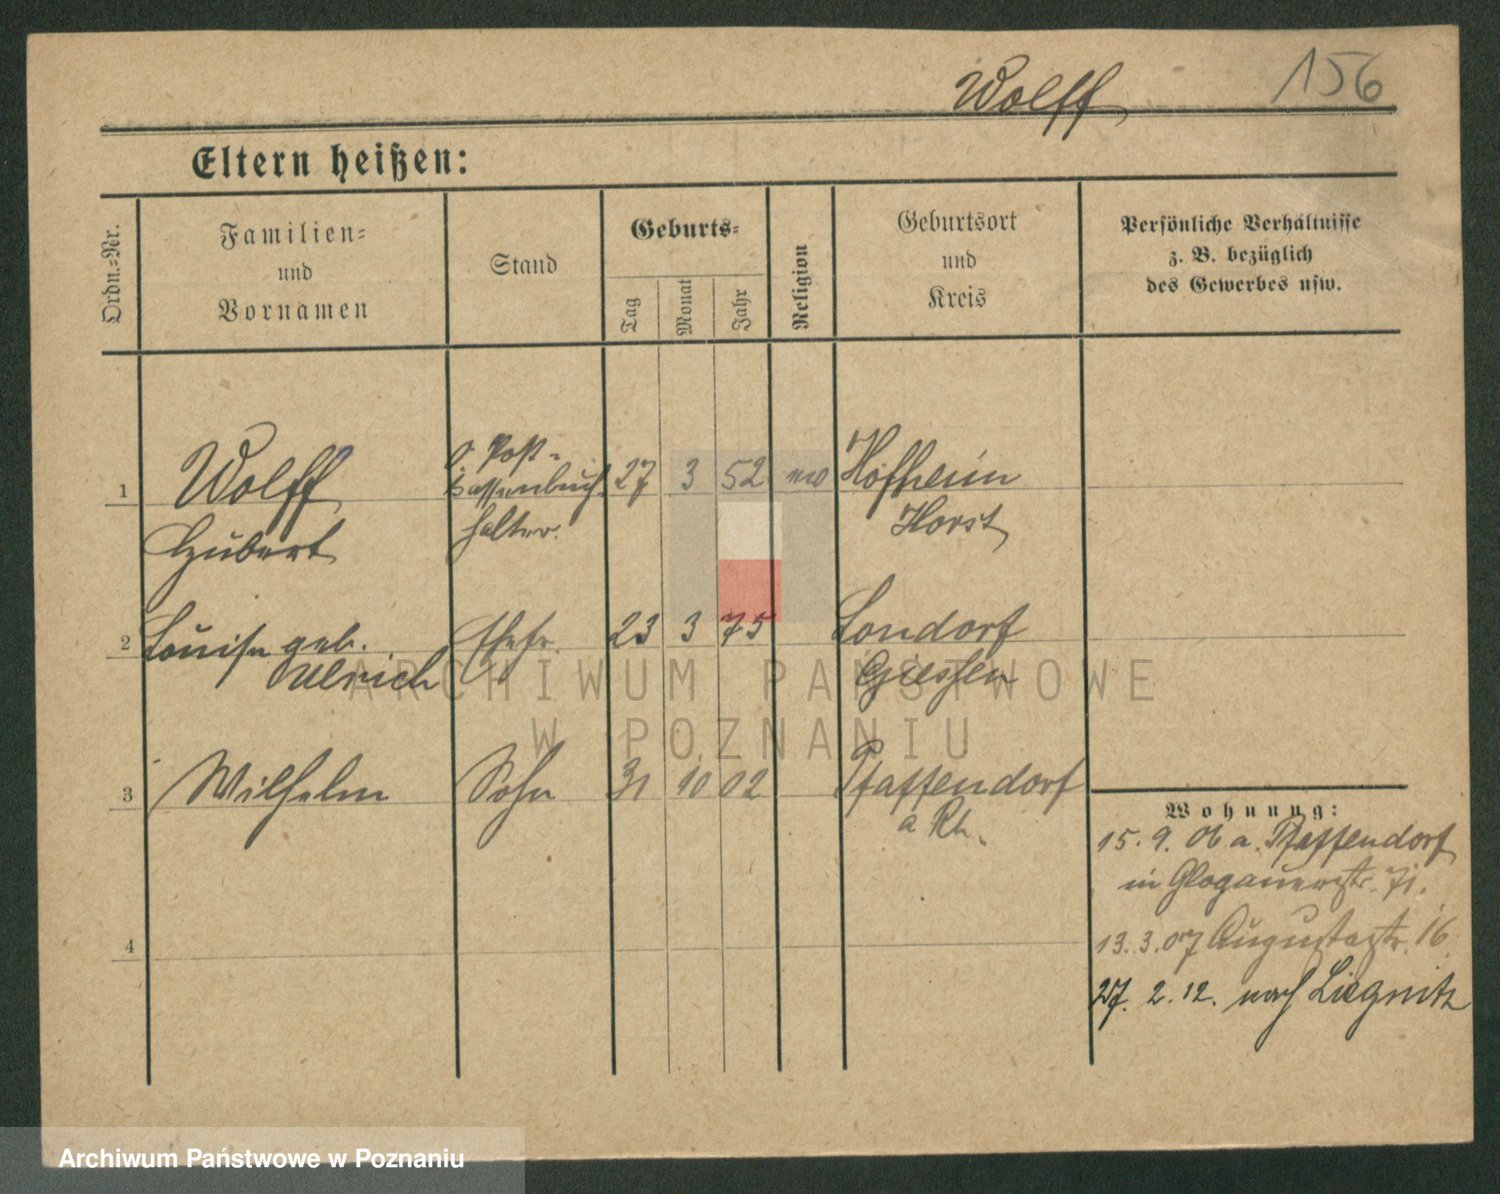 Wolff 156
Eltern heißen:
Ordn.=Nr.
Familien=
und
Vornamen
Stand
Geburts=
Tag
Monat
Jahr
Religion
Geburtsort
und
Kreis
Persönliche Verhältnisse
z. B. bezüglich
des Gewerbes usw.
1 Wolff O. Post= 27 3 52 Hofheim
kassenbuch
Hubert halter. Horst
2 Louise geb. Ehefr. 23 3 75 Londorf
Ulrich Giessen
3 Wilhelm Sohn 31 10 02 Pfaffendorf
a Rh.
4
Wohnung:
15. 9. 06 a. Pfaffendorf
in Glogauerstr. 71.
13. 3. 07 Augustastr. 16
27. 2. 12. nach Liegnitz
ARCHIWUM PAŃSTWOWE
W POZNANIU
Archiwum Państwowe w Poznaniu